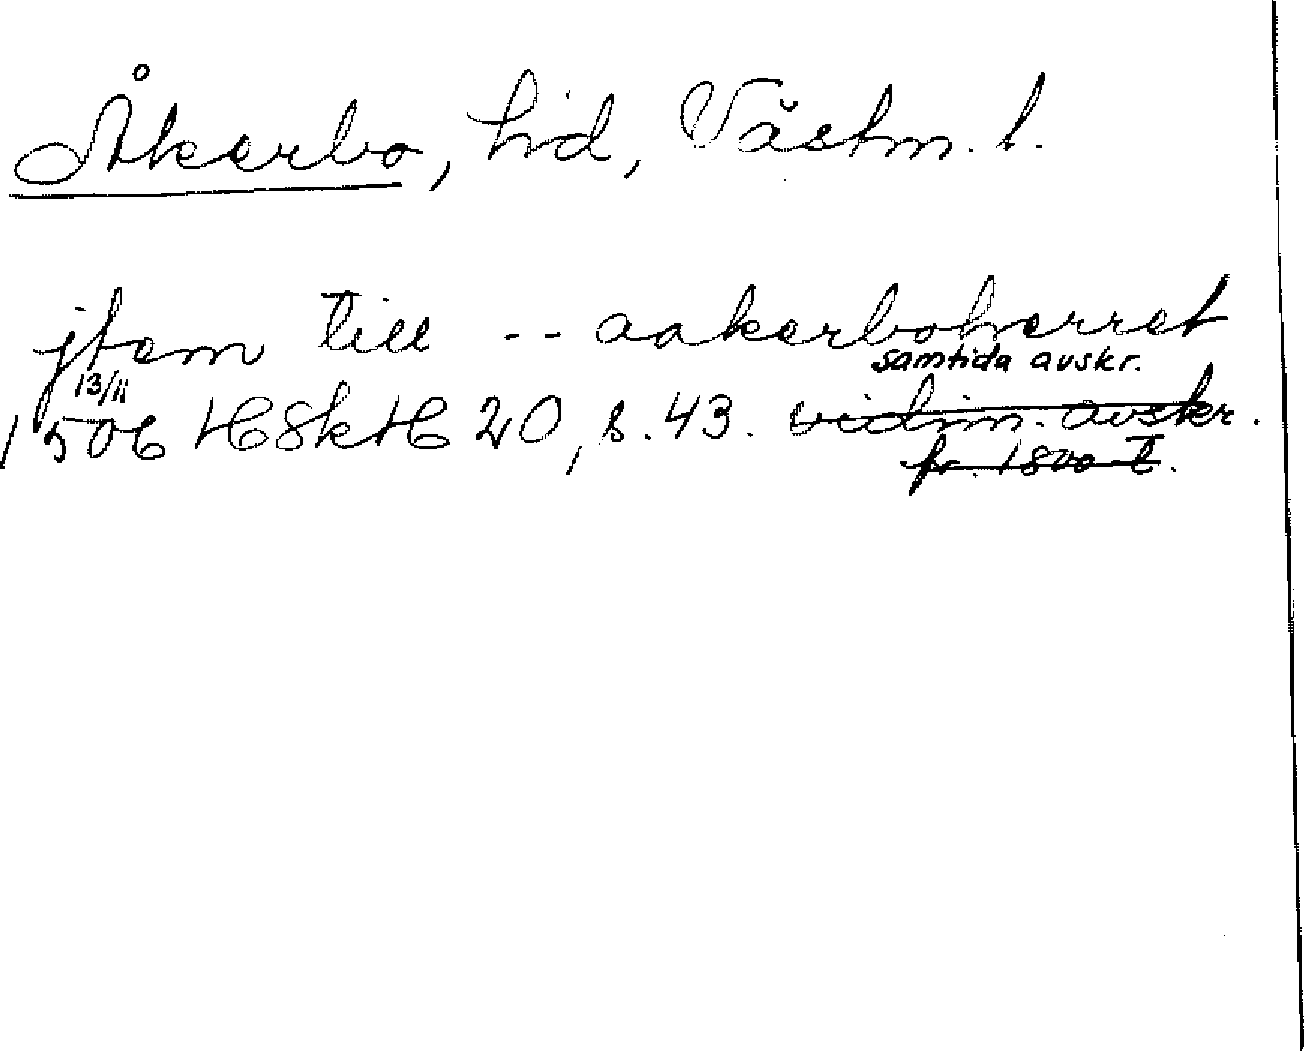 Åkerbo, hd, Västm. l.
jtem till -- aakerboherret
samtida avskr.
13/11
1506 HSkH 20, s. 43. vidim. avskr.
fr. 1800-t.